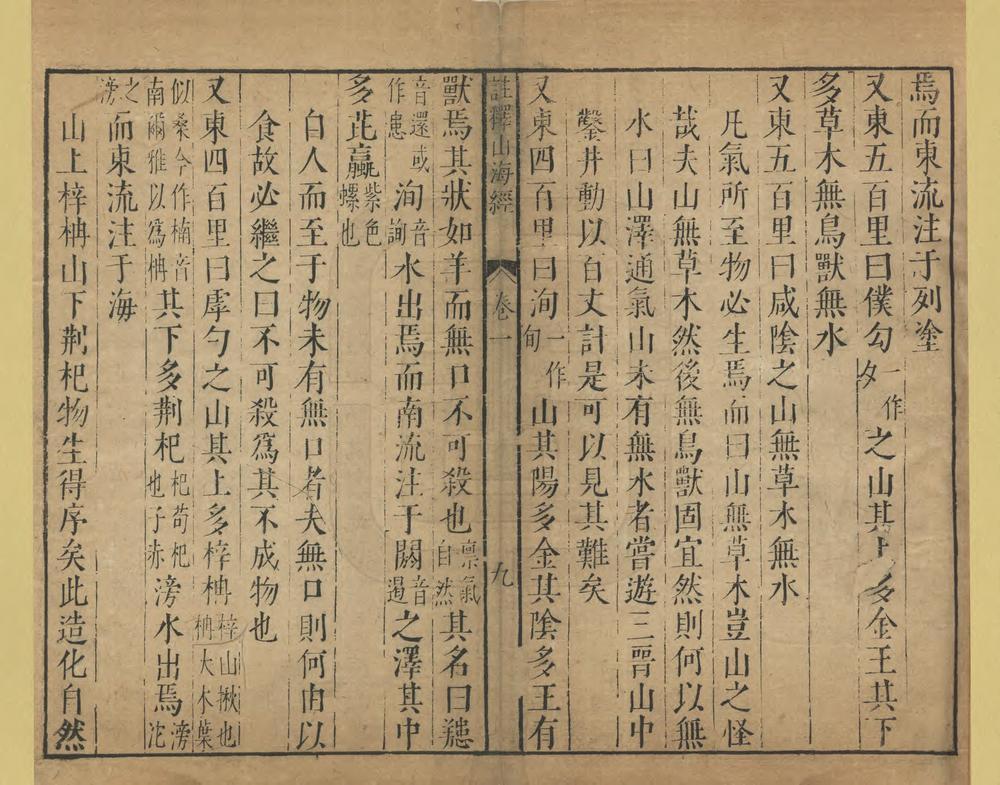 焉而東流注于列塗
又東五百里曰僕勾一作夕之山其上多金玉其下
多草木無鳥獸無水
又東五百里曰咸陰之山無草木無水
凡氣所至物必生焉而曰山無草木豈山之怪
哉夫山無草木然後無鳥獸固宜然則何以無
水曰山澤通氣山未有無水者嘗遊三晋山中
鑿井動以百丈計是可以見其難矣
又東四百里曰洵一作旬山其陽多金其陰多玉有
註釋山海經 卷一 九
獸焉其狀如羊而無口不可殺也禀氣自然其名曰䍺
音還或作患洵音詢水出焉而南流注于閼音遏之澤其中
多芘蠃紫色螺也
自人而至于物未有無口者夫無口則何由以
食故必繼之曰不可殺爲其不成物也
又東四百里曰虖勺之山其上多梓柟梓山楸也柟大木葉
似桑今作楠音南爾雅以爲柟其下多荆杞杞苟杞也子赤滂水出焉滂沱
之滂而東流注于海
山上梓柟山下荆杞物生得序矣此造化自然